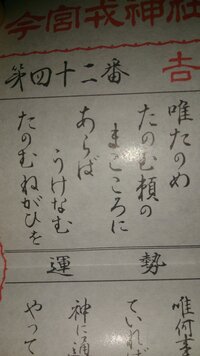 今宮戎神社
吉
第四十二番
唯たのめ
たのむ頼の
まごころに
あらば
うけなむ
たのむねがひを
運勢
唯何事
ていれば
神に通
やって